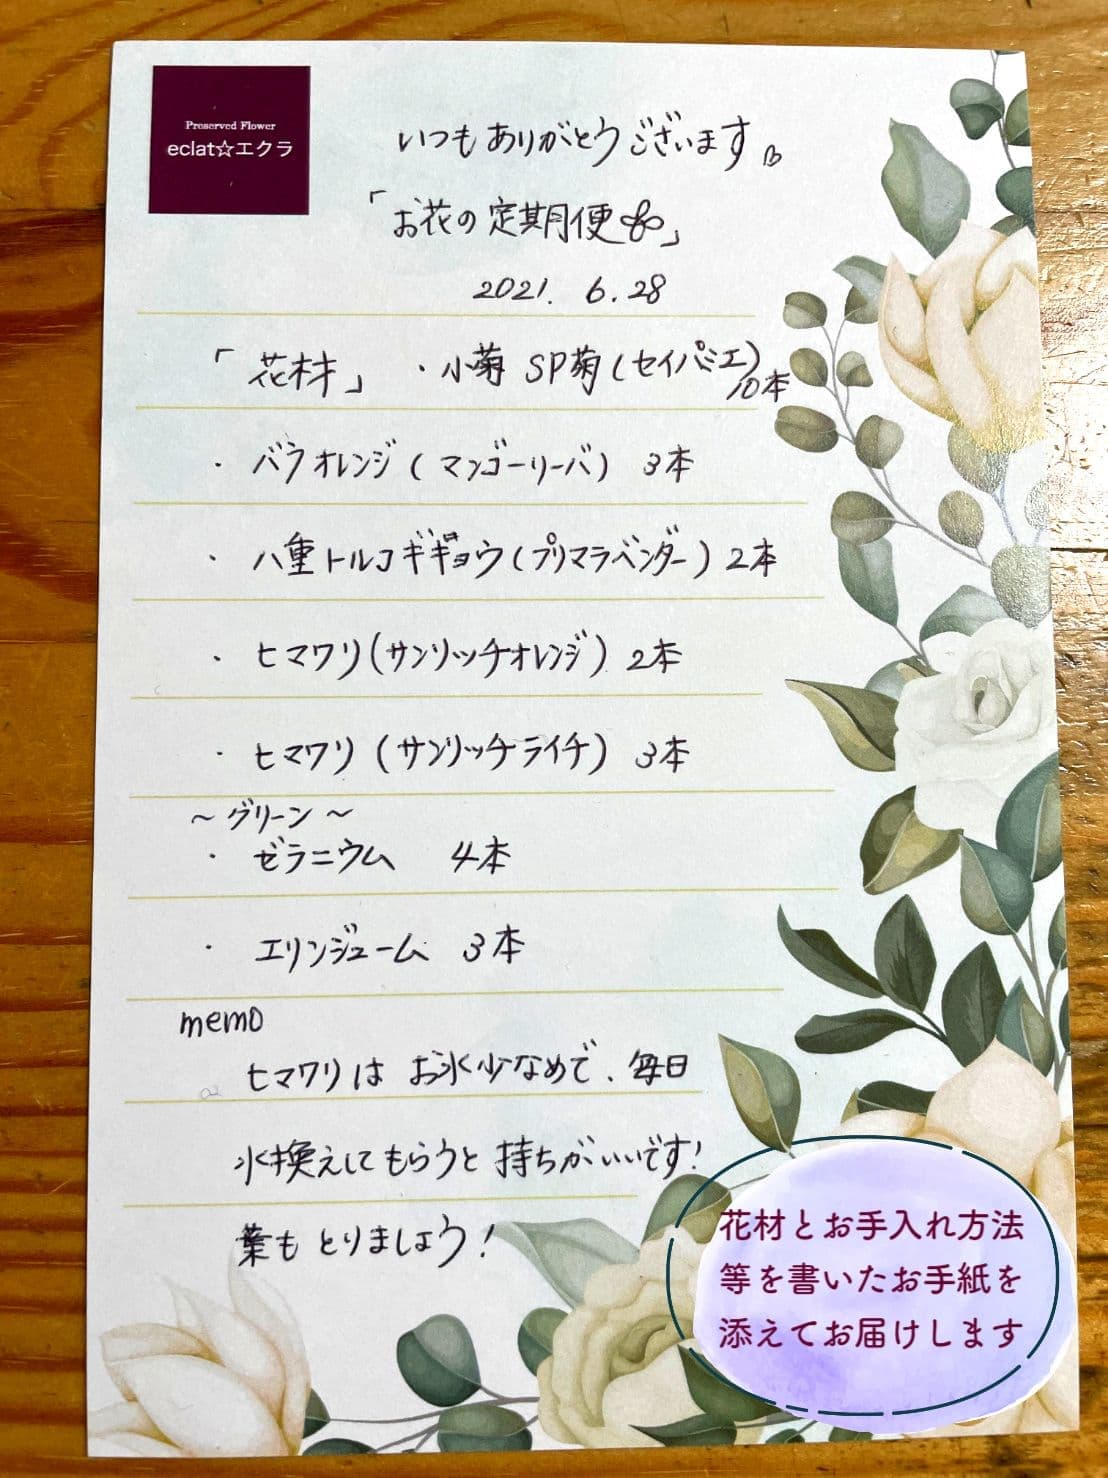 Preserved Flower
eclat☆エクラ
いつもありがとうございます
「お花の定期便」
2021. 6. 28
「花材」 ・小菊 SP菊(セイパミエ)
10本
・ バラオレンジ(マンゴーリーバ) 3本
・ 八重トルコギギョウ(プリマラベンダー) 2本
・ ヒマワリ(サンリッチオレンジ) 2本
・ ヒマワリ(サンリッチライチ) 3本
～グリーン～
・ ゼラニウム 4本
・ エリンジューム 3本
memo
ヒマワリは お水少なめで、毎日
水換えしてもらうと 持ちがいいです!
葉も とりましょう!
花材とお手入れ方法
等を書いたお手紙を
添えてお届けします